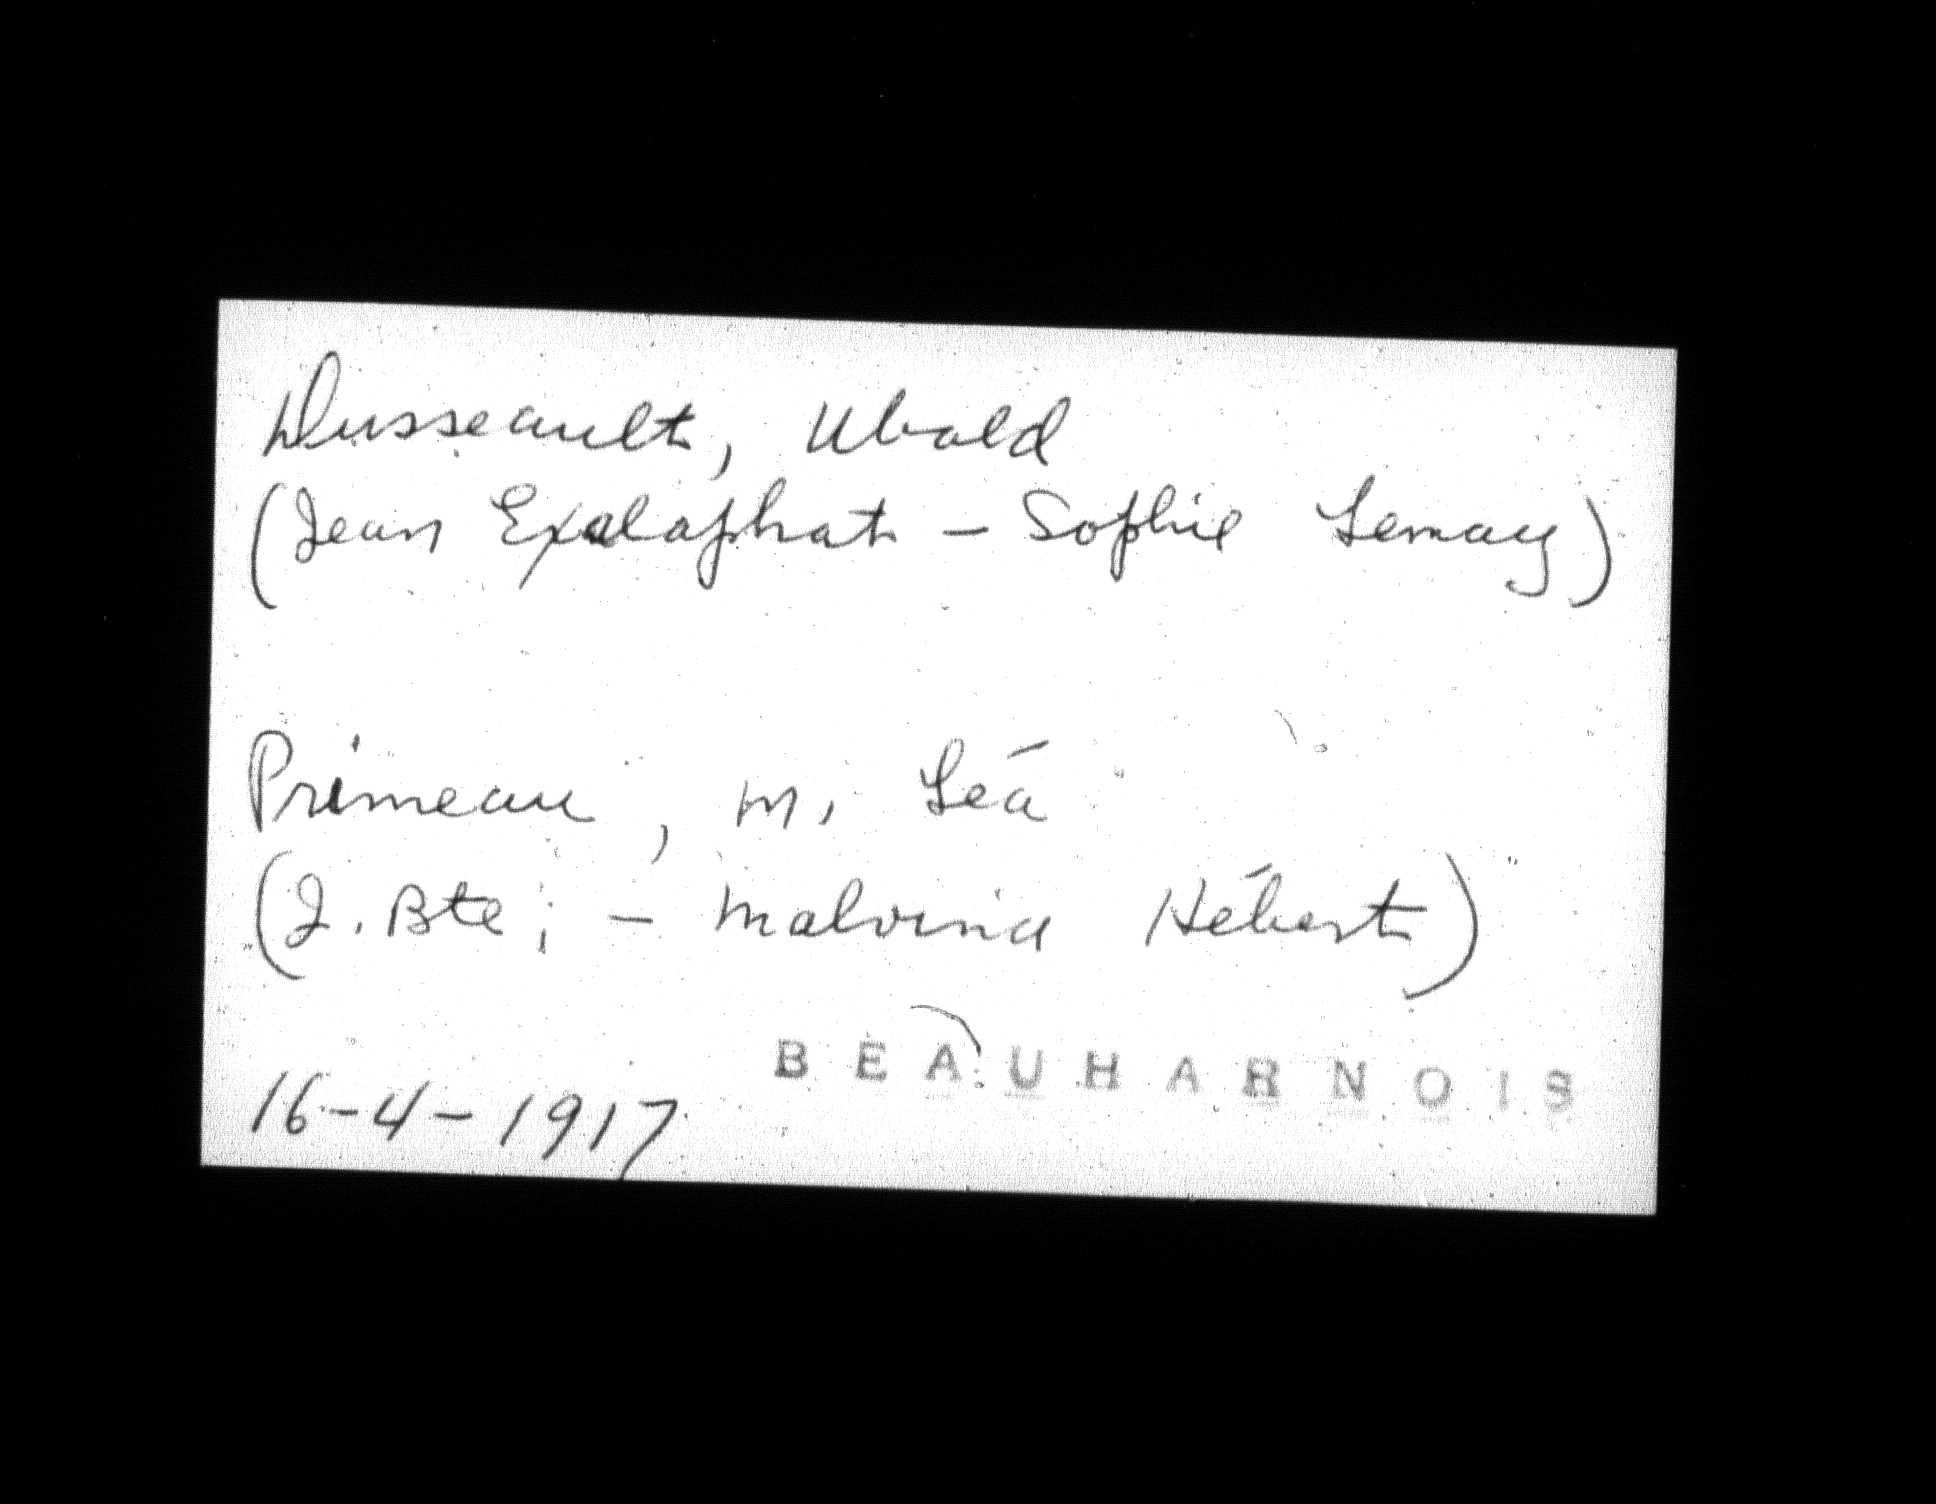 Dusseault, Ubald
(Jean Exalaphat - Sophie Lemay)
Primeau, m. Léa
(J. Bte; - Malvina Hébert)
BEAUHARNOIS
16-4-1917